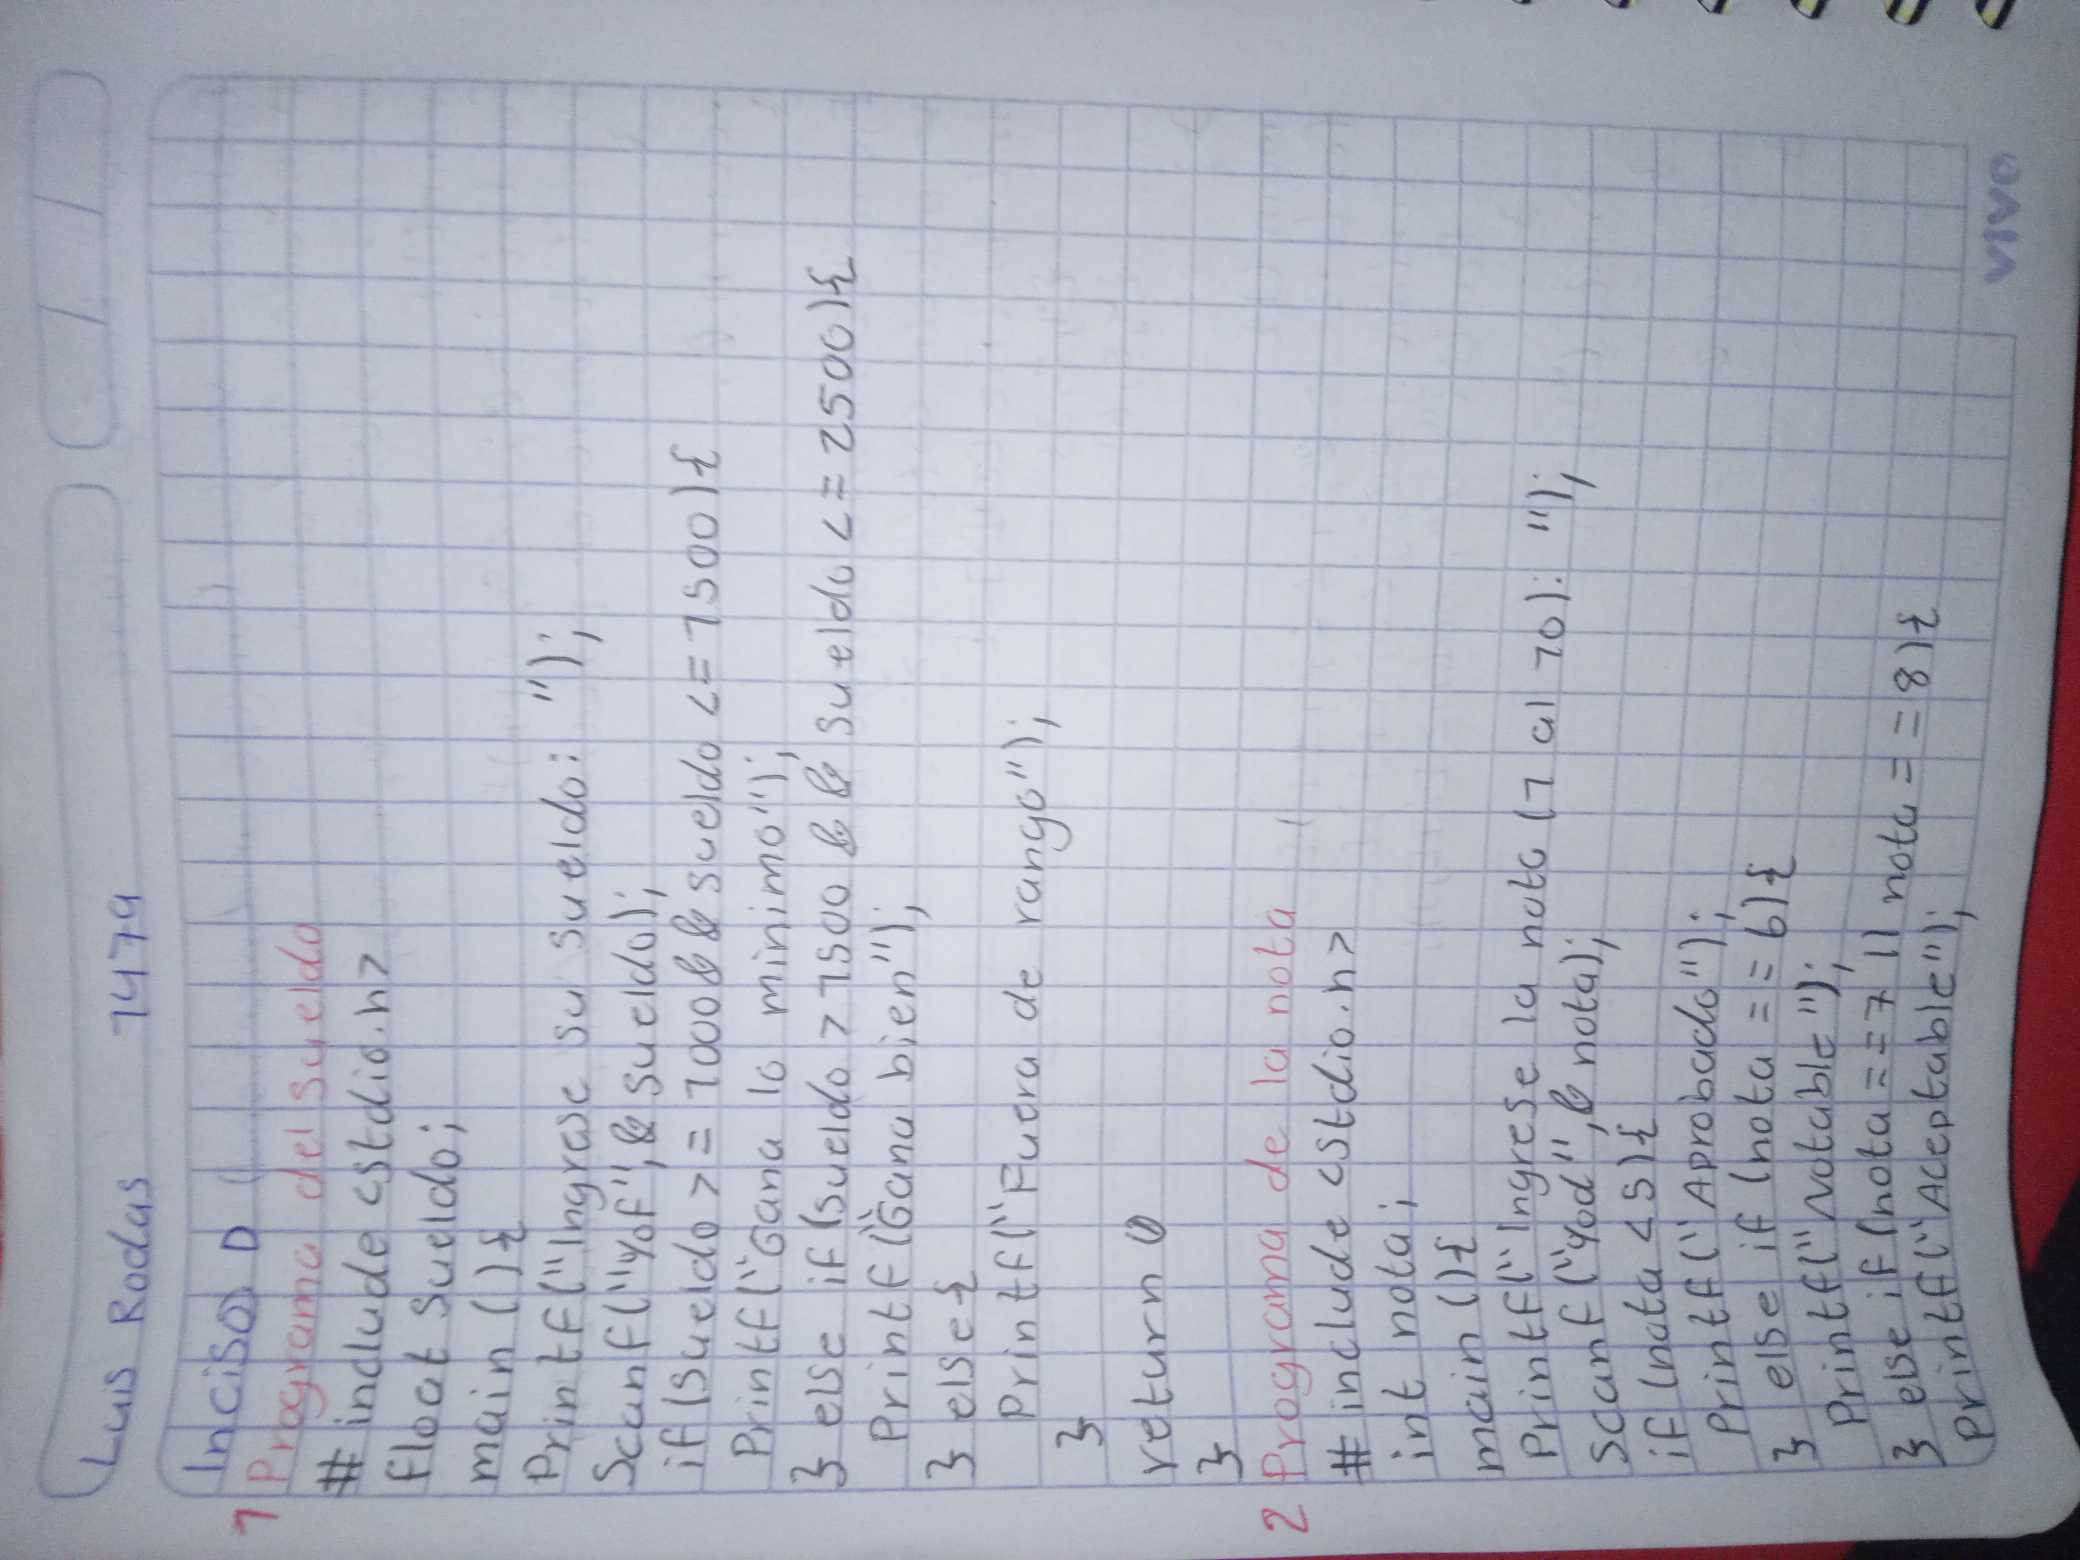 Luis Rodas 1479
Inciso D
1 Programa del sueldo
#include <stdio.h>
float sueldo;
main () {
Printf("Ingrese su sueldo: ");
Scanf("%f", & sueldo);
if (sueldo >= 1000 && sueldo <= 1500) {
Printf("Gana lo minimo");
} else if (sueldo > 1500 && sueldo <= 2500) {
Printf ("Gana bien");
} else {
Printf("Fuera de rango");
}
return 0
}
2 Programa de la nota
#include <stdio.h>
int nota;
main () {
Printf("Ingrese la nota (1 al 10): ");
Scanf ("%d", & nota);
if (nota < 5) {
Printf ("Aprobado");
} else if (nota == 6) {
Printf("Notable");
} else if (nota == 7 || nota == 8) {
Printf("Aceptable");
vivo